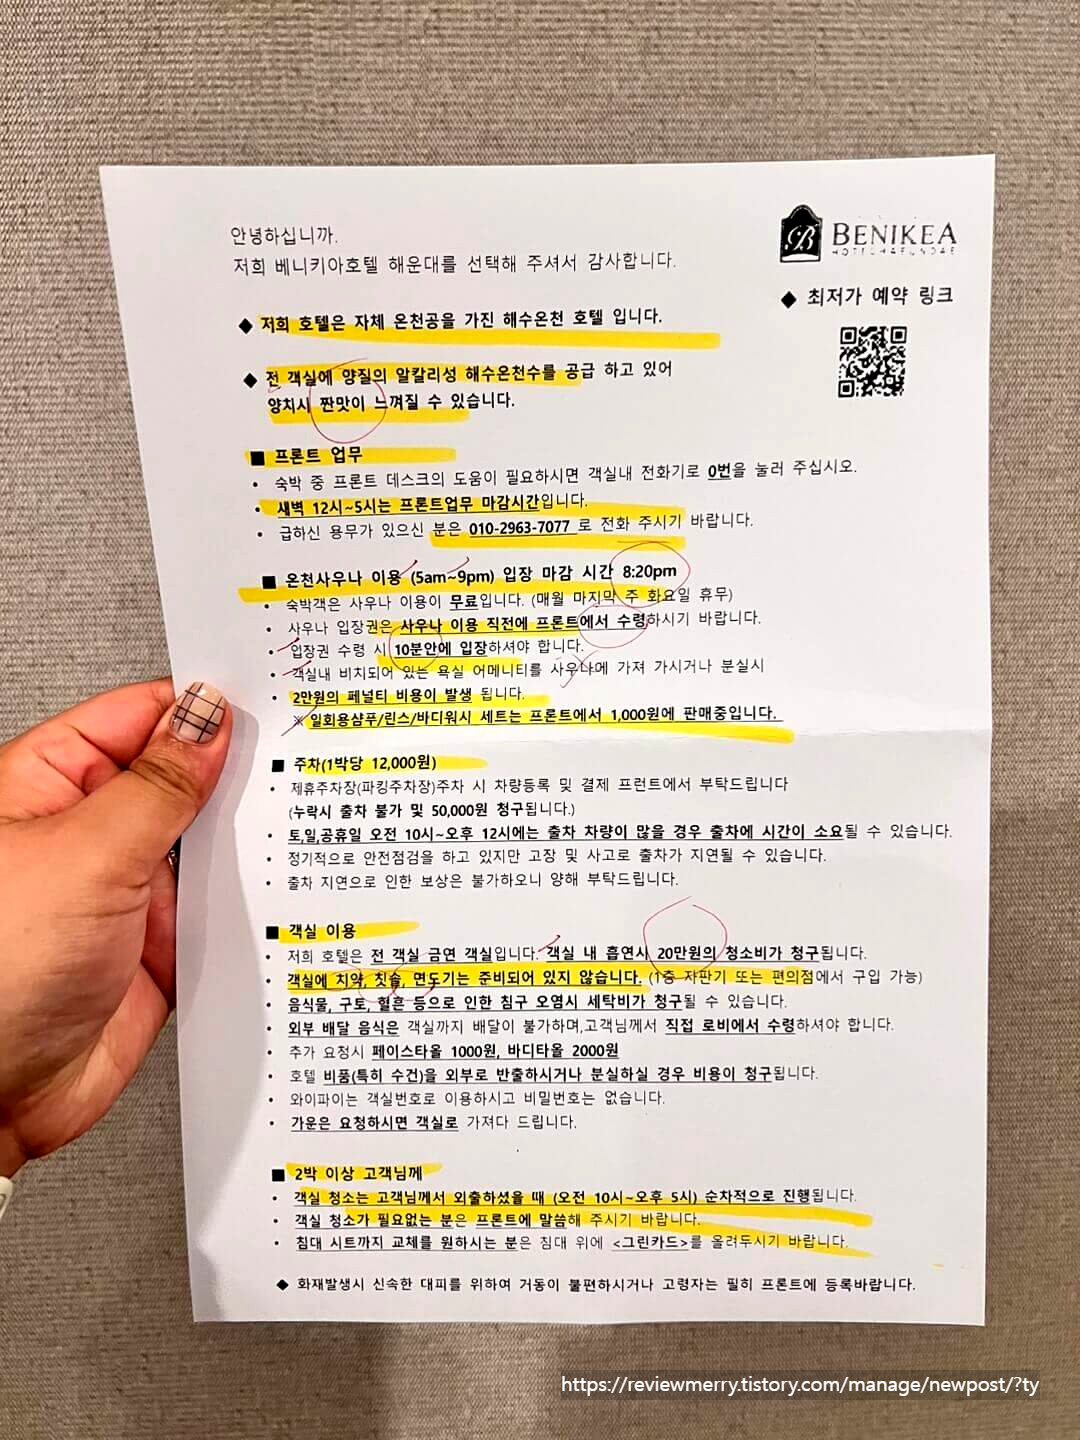 안녕하십니까.
저희 베니키아호텔 해운대를 선택해 주셔서 감사합니다.
BENIKEA
HOTEL HAEUNDAE
◆ 최저가 예약 링크
◆ 저희 호텔은 자체 온천공을 가진 해수온천 호텔 입니다.
◆ 전 객실에 양질의 알칼리성 해수온천수를 공급 하고 있어
양치시 짠맛이 느껴질 수 있습니다.
■ 프론트 업무
• 숙박 중 프론트 데스크의 도움이 필요하시면 객실내 전화기로 0번을 눌러 주십시오.
• 새벽 12시~5시는 프론트업무 마감시간입니다.
• 급하신 용무가 있으신 분은 010-2963-7077 로 전화 주시기 바랍니다.
■ 온천사우나 이용 (5am~9pm) 입장 마감 시간 8:20pm
• 숙박객은 사우나 이용이 무료입니다. (매월 마지막 주 화요일 휴무)
• 사우나 입장권은 사우나 이용 직전에 프론트에서 수령하시기 바랍니다.
• 입장권 수령 시 10분안에 입장하셔야 합니다.
• 객실내 비치되어 있는 욕실 어메니티를 사우나에 가져 가시거나 분실시
• 2만원의 페널티 비용이 발생 됩니다.
※ 일회용샴푸/린스/바디워시 세트는 프론트에서 1,000원에 판매중입니다.
■ 주차(1박당 12,000원)
• 제휴주차장(파킹주차장)주차 시 차량등록 및 결제 프런트에서 부탁드립니다
(누락시 출차 불가 및 50,000원 청구됩니다.)
• 토,일,공휴일 오전 10시~오후 12시에는 출차 차량이 많을 경우 출차에 시간이 소요될 수 있습니다.
• 정기적으로 안전점검을 하고 있지만 고장 및 사고로 출차가 지연될 수 있습니다.
• 출차 지연으로 인한 보상은 불가하오니 양해 부탁드립니다.
■ 객실 이용
• 저희 호텔은 전 객실 금연 객실입니다. 객실 내 흡연시 20만원의 청소비가 청구됩니다.
• 객실에 치약, 칫솔, 면도기는 준비되어 있지 않습니다. (1층 자판기 또는 편의점에서 구입 가능)
• 음식물, 구토, 혈흔 등으로 인한 침구 오염시 세탁비가 청구될 수 있습니다.
• 외부 배달 음식은 객실까지 배달이 불가하며,고객님께서 직접 로비에서 수령하셔야 합니다.
• 추가 요청시 페이스타올 1000원, 바디타올 2000원
• 호텔 비품(특히 수건)을 외부로 반출하시거나 분실하실 경우 비용이 청구됩니다.
• 와이파이는 객실번호로 이용하시고 비밀번호는 없습니다.
• 가운은 요청하시면 객실로 가져다 드립니다.
■ 2박 이상 고객님께
• 객실 청소는 고객님께서 외출하셨을 때 (오전 10시~오후 5시) 순차적으로 진행됩니다.
• 객실 청소가 필요없는 분은 프론트에 말씀해 주시기 바랍니다.
• 침대 시트까지 교체를 원하시는 분은 침대 위에 <그린카드>를 올려두시기 바랍니다.
◆ 화재발생시 신속한 대피를 위하여 거동이 불편하시거나 고령자는 필히 프론트에 등록바랍니다.
https://reviewmerry.tistory.com/manage/newpost/?ty